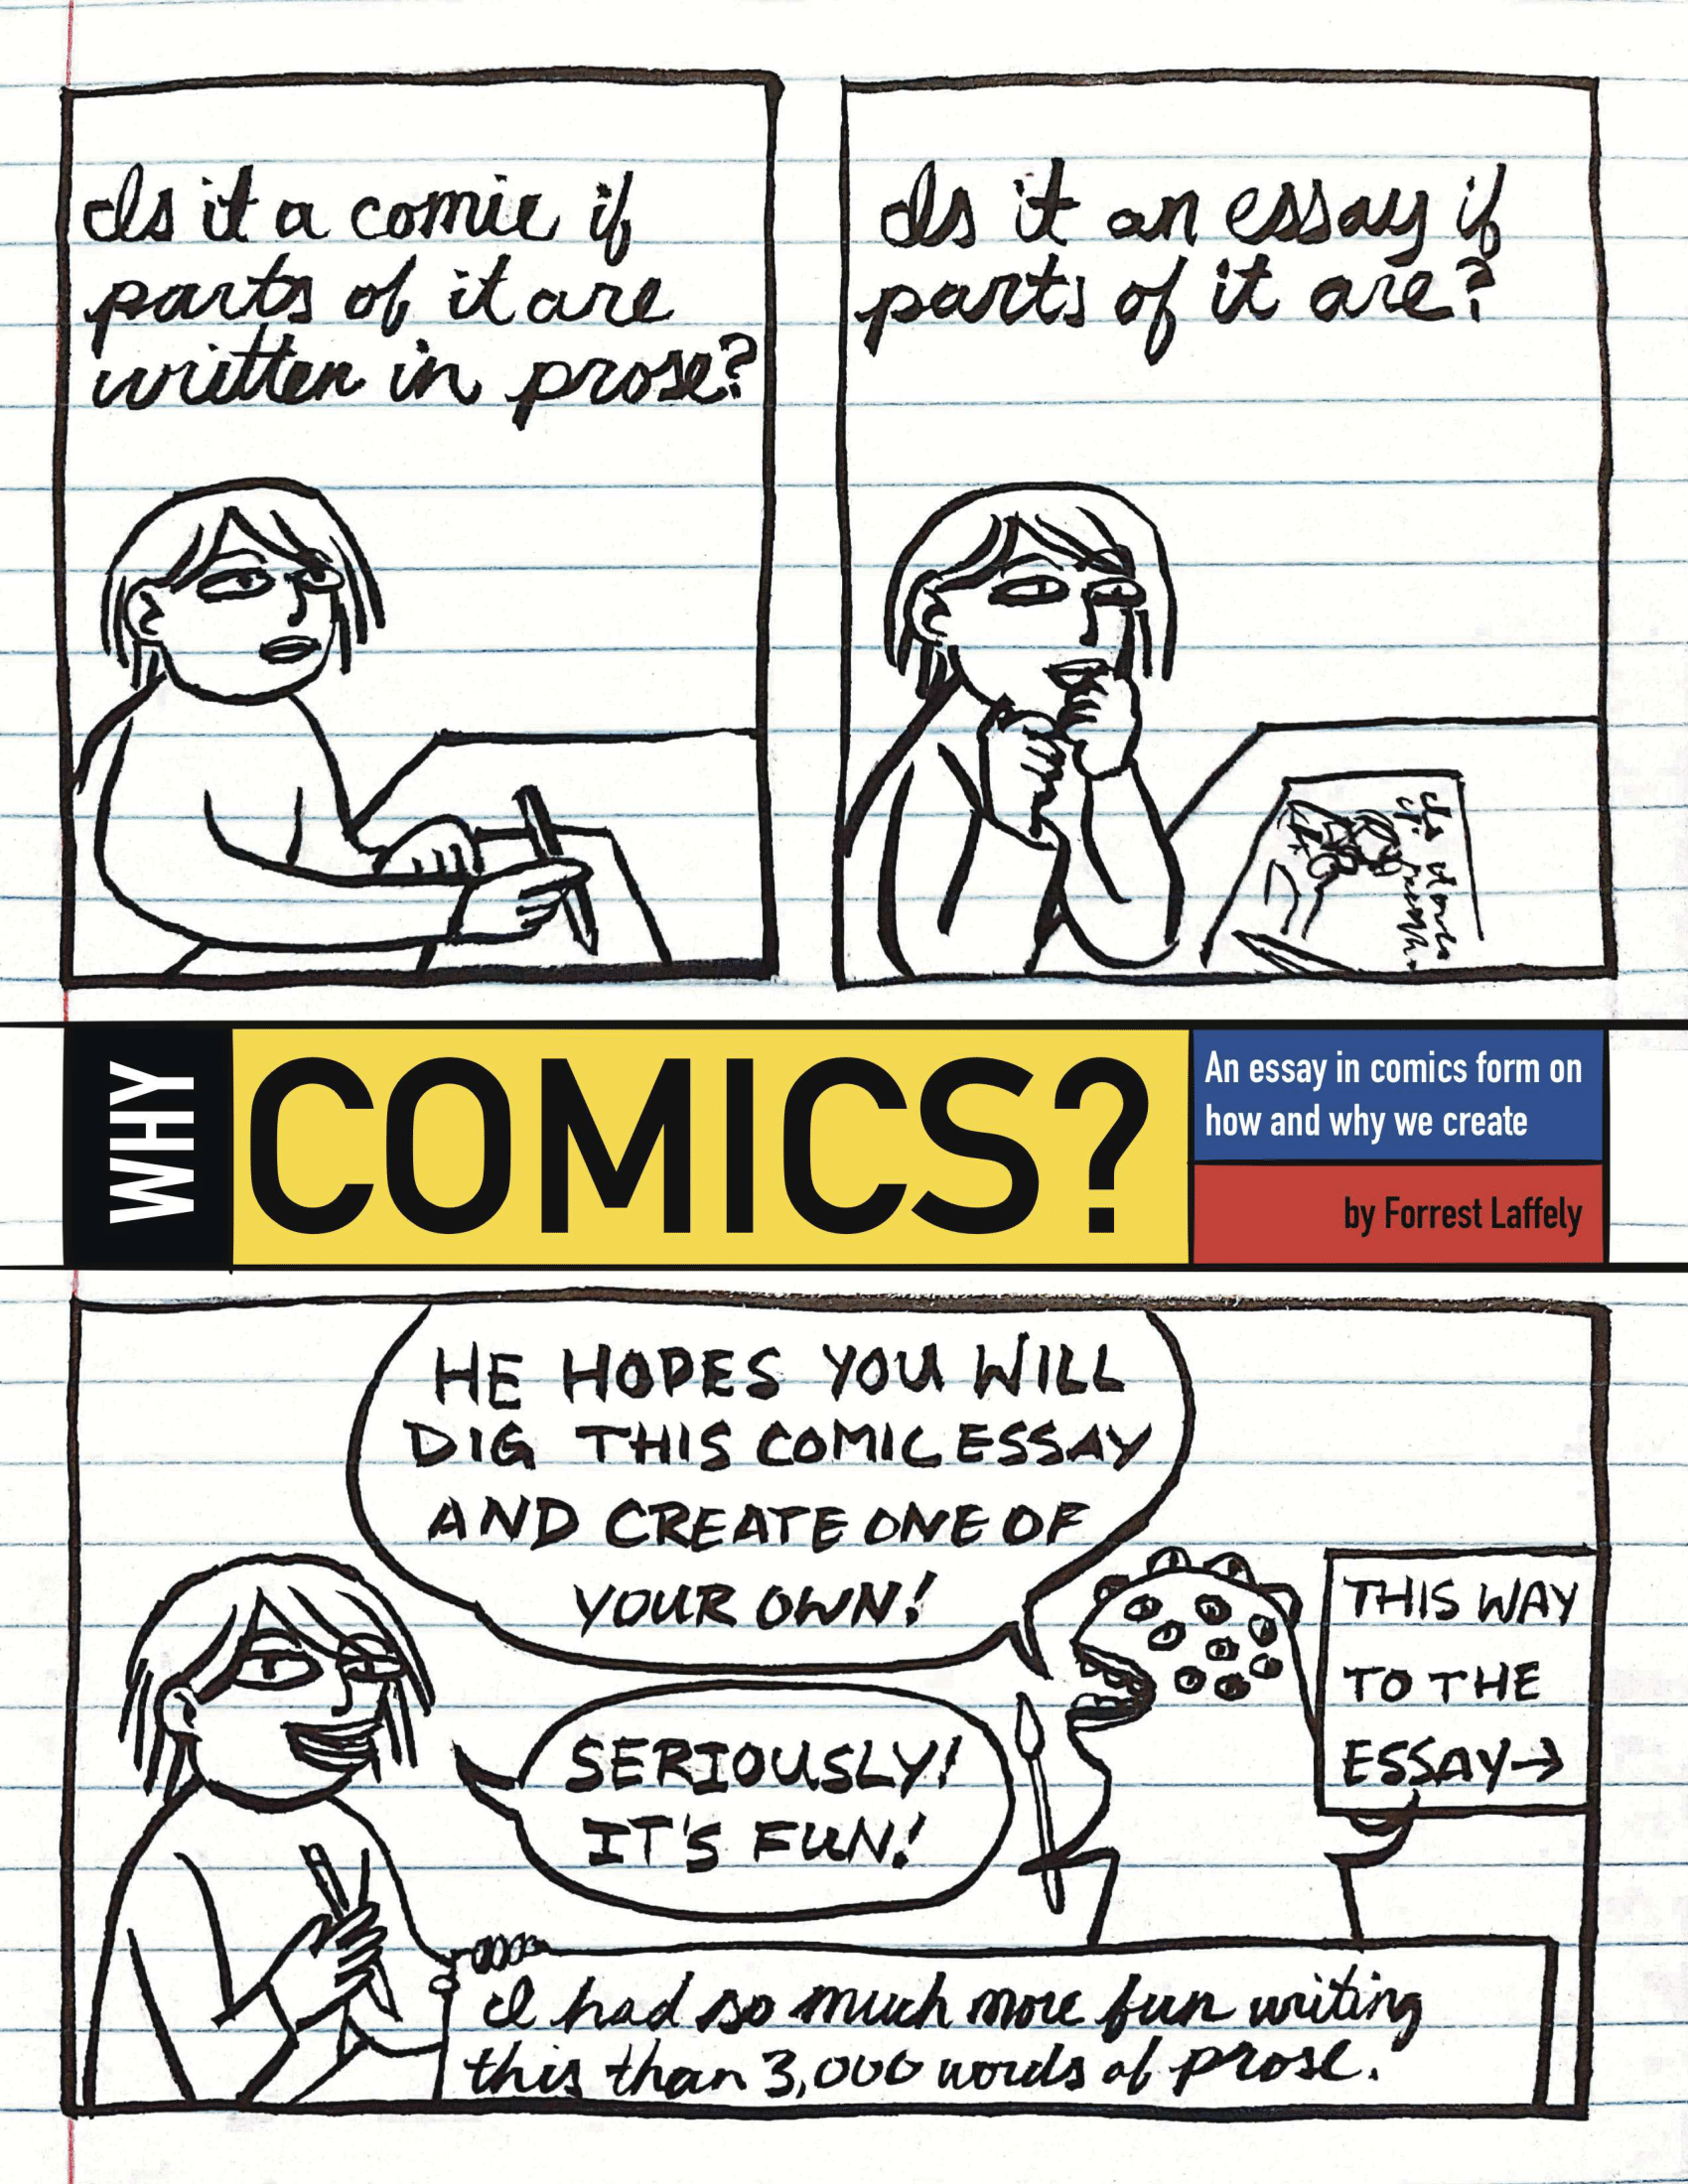 Is it a comic if
parts of it are
written in prose?
Is it an essay if
parts of it are?
WHY
COMICS?
An essay in comics form on
how and why we create
by Forrest Laffely
HE HOPES YOU WILL
DIG THIS COMIC ESSAY
AND CREATE ONE OF
YOUR OWN!
SERIOUSLY!
IT'S FUN!
THIS WAY
TO THE
ESSAY→
I had so much more fun writing
this than 3,000 words of prose.